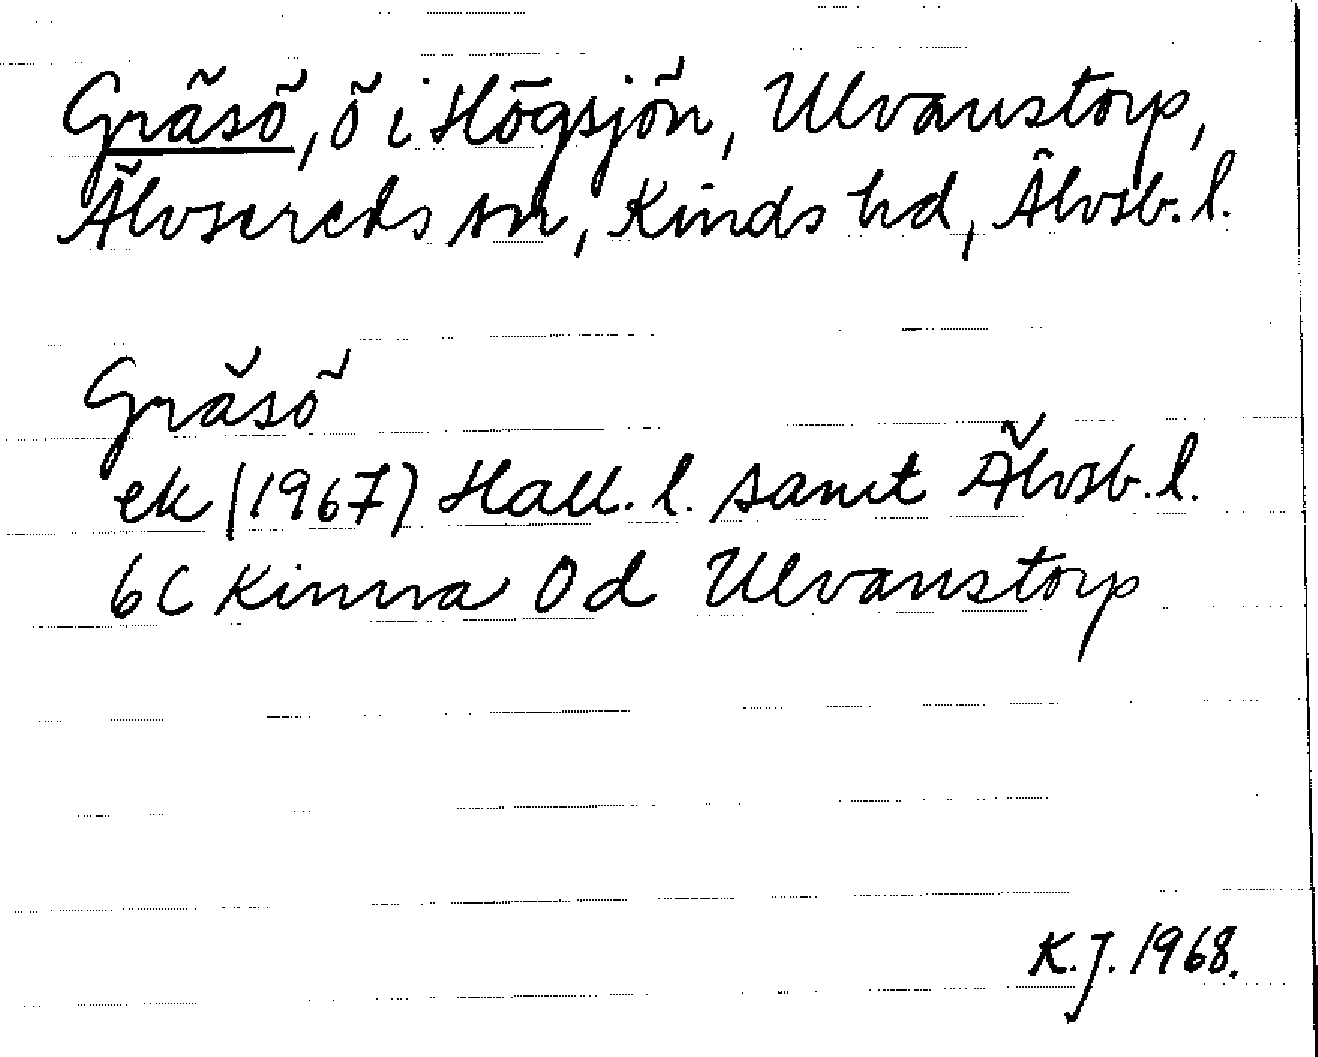 Gräsö, ö i Högsjön, Ulvanstorp,
Älvsereds sn, Kinds hd, Älvsb. l.
Gräsö
ek (1967) Hall. l. samt Älvsb. l.
6C Kinna 0d Ulvanstorp
K.J. 1968.